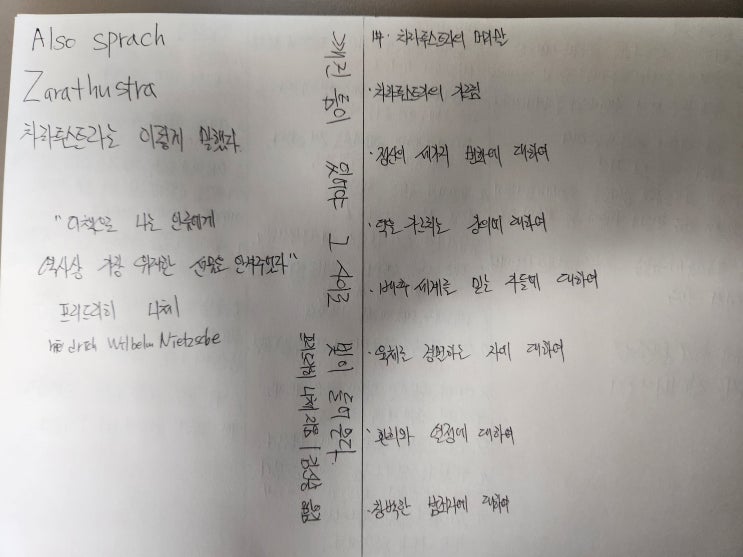 Also sprach
Zarathustra
차라투스트라는 이렇게 말했다.
"이 책으로 나는 인류에게
역사상 가장 위대한 선물을 안겨주었다"
프리드리히 니체
Wilhelm Nietzsche
깨진 틈이 있어야 그 사이로 빛이 들어 온다.
프리드리히 니체 지음 | 김신상 옮김
차라투스트라의 머리말
· 차라투스트라의 가르침
· 정신의 세가지 변화에 대하여
· 덕을 가르치는 강의에 대하여
· 배후 세계를 믿는 자들에 대하여
· 육체를 경멸하는 자에 대하여
· 환희와 열정에 대하여
· 창백한 범죄자에 대하여